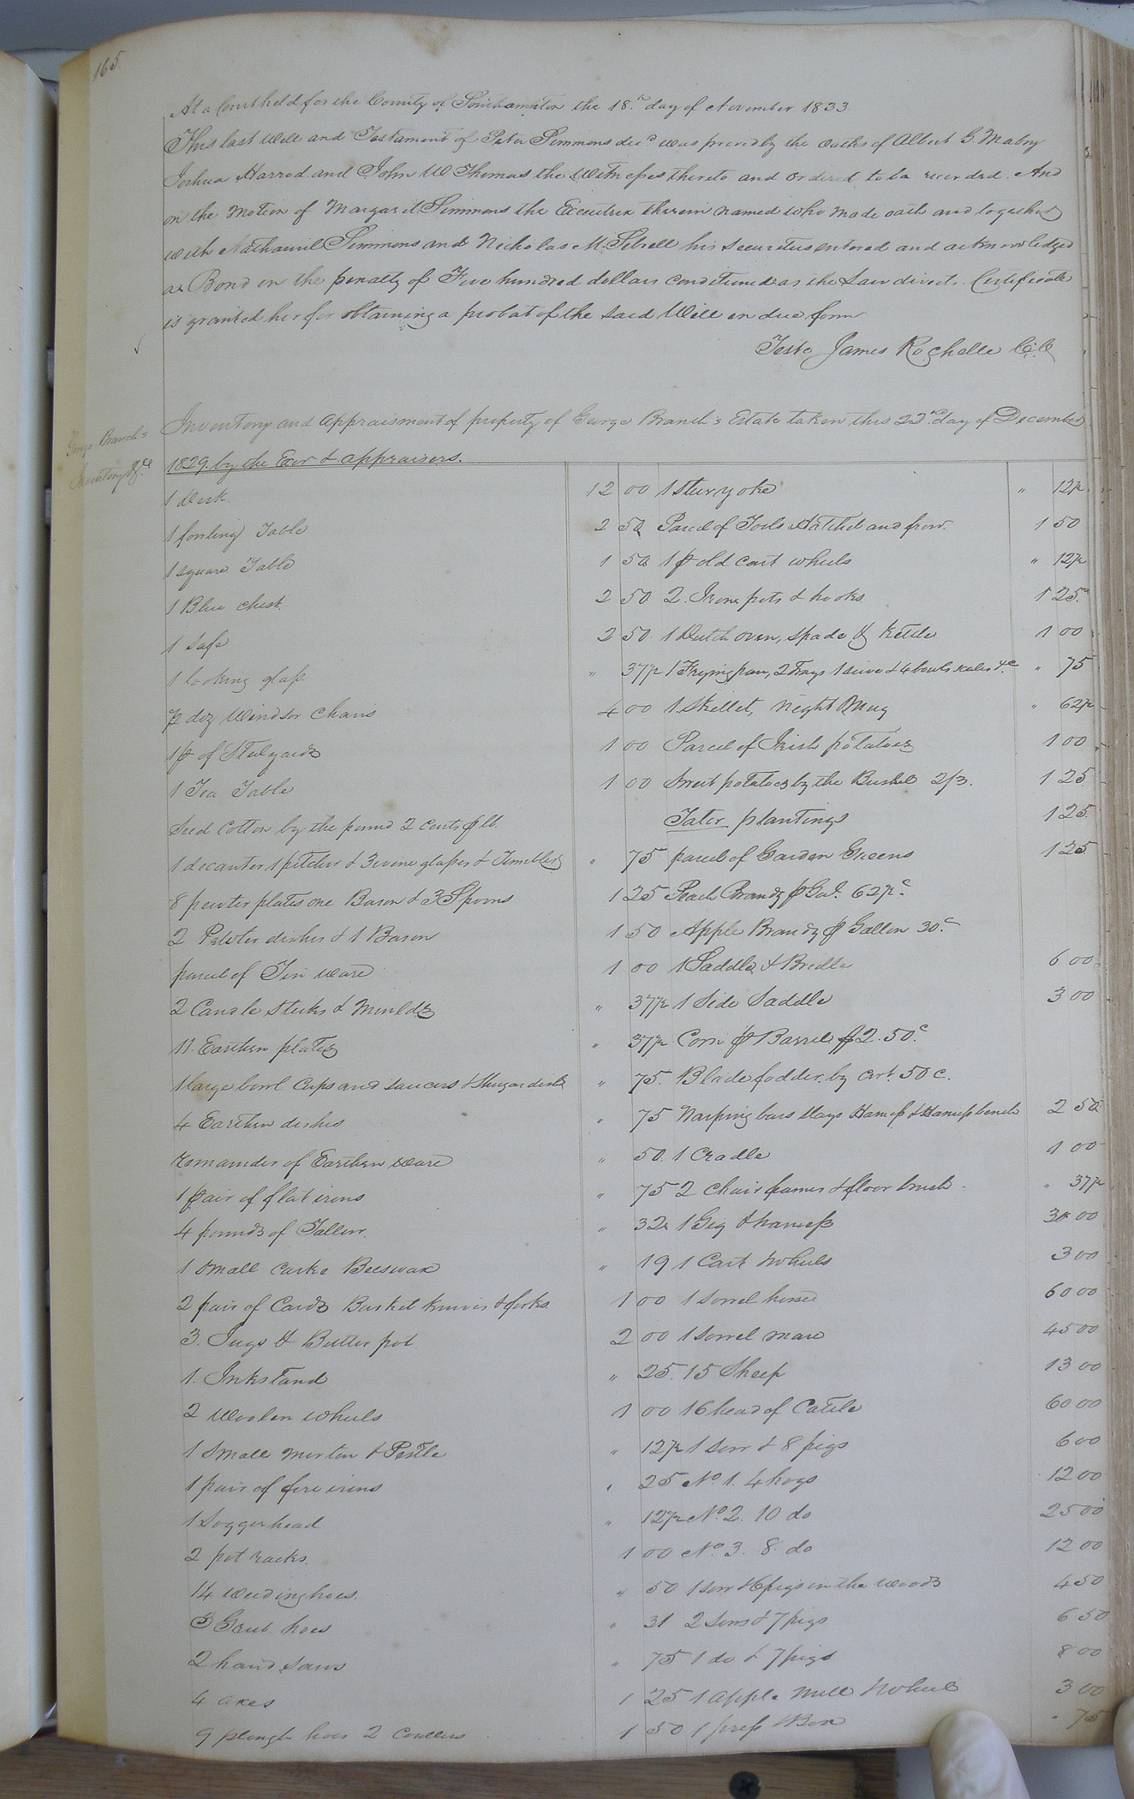 165
At a Court held for the County of Southampton the 18th day of November 1833
This last Will and Testament of Peter Simmons decd was proved by the oaths of Albert G Mabry
Joshua Harrod and John W Thomas the Witnesses thereto and ordered to be recorded. And
on the Motion of Margaret Simmons the Executrix therein named who made oath and together
with Nathaniel Simmons and Nicholas M. Sebrell his securities entered and acknowledged
a Bond in the penalty of Five hundred dollars conditioned as the Law directs. Certificate
is granted her for obtaining a probat of the said Will in due form
Teste James Rochelle C.C.
George Branch's
Inventory &c
Inventory and Appraisment of property of George Branch's Estate taken this 22nd day of December
1829 by the Exor & appraisers.
1 desk 12 00 1 steer yoke " 12½
1 folding Table 2 50 Parcel of Tools Hatchet and frow. 1 50
1 square Table 1 50 1 pr old cart wheels " 12½
1 Blue chest. 2 50 2 Iron pots & hooks 1 25
1 safe 2 50 1 Dutch oven, spade & kettle 1 00
1 looking glass " 37½ 1 Frying pan, 2 Trays 1 seive & 4 bowls &c " 75
½ doz Windsor Chairs 4 00 1 Skillet, Night Mug " 62½
1 pr of Stelyards 1 00 Parcel of Irish potatoes 1 00
1 Tea Table 1 00 Sweet potatoes by the Bushel 2/3. 1 25
Seed Cotton by the pound 2 cents pr lb. Tater plantings 1 25
1 decanter 1 pitcher & 3 wine glasses & Tumblers " 75 parcel of Garden Greens 1 25
8 pewter plates one Bason & 3 Spoons 1 25 Peach Brandy pr Gal. 62½c
2 Pewter dishes & 1 Bason 1 50 Apple Brandy pr Gallon 30c
parcel of Tin ware 1 00 1 Saddle & Bridle 6 00
2 Candle sticks & Moulds " 37½ 1 Side Saddle 3 00
11 Earthen plates " 37½ Corn pr Barrel $2.50c
1 large bowl Cups and saucers & Sugar dish " 75 Blade fodder by Cwt. 50c.
4 Earthen dishes " 75 Warping bars Slays Harness & Harness bench 2 50
remainder of Earthen ware " 50 1 Cradle 1 00
1 pair of flat irons " 75 2 Chair frames & floor brush " 37½
4 pounds of Tallow. " 32 1 Gig & harness 30 00
1 Small Cake Beeswax " 19 1 Cart Wheels 3 00
2 pair of Cards Basket knives & forks 1 00 1 Sorrel horse 60 00
3 Jugs & Butter pot 2 00 1 sorrel mare 45 00
1 Inkstand " 25 15 Sheep 13 00
2 Woolen wheels 1 00 16 head of Cattle 60 00
1 Small Morter & Pestle " 12½ 1 Sow & 8 pigs 6 00
1 pair of fire irons " 25 No 1. 4 hogs 12 00
1 Loggerhead " 12½ No 2. 10 do 25 00
2 pot racks 1 00 No 3. 8 do 12 00
14 weeding hoes " 50 1 sow & 6 pigs in the woods 4 50
3 Grub hoes " 31 2 Sows & 7 pigs 6 50
2 hand saws " 75 1 do & 7 pigs 8 00
4 axes 1 25 1 apple Mill Wheel 3 00
9 plough hoes 2 Coulters 1 50 1 press & Box " 75